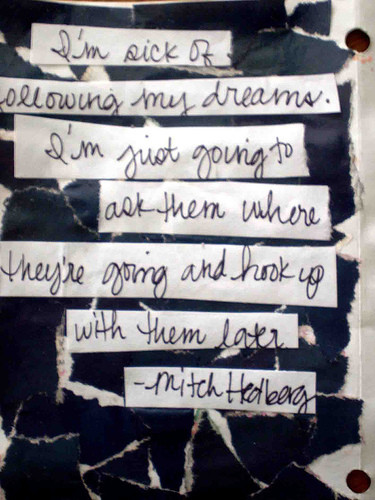 I'm sick of
following my dreams.
I'm just going to
ask them where
they're going and hook up
with them later
-Mitch Hedberg